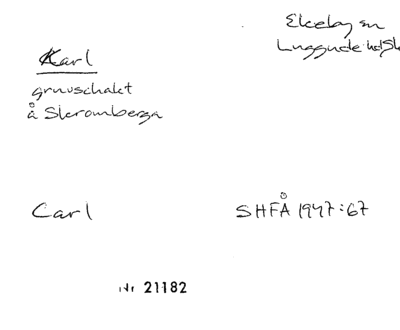 Ekeby sn
Luggude hd, Sk
Karl
gruvschakt
å Skromberga
Carl
SHFÅ 1947:67
Nr 21182